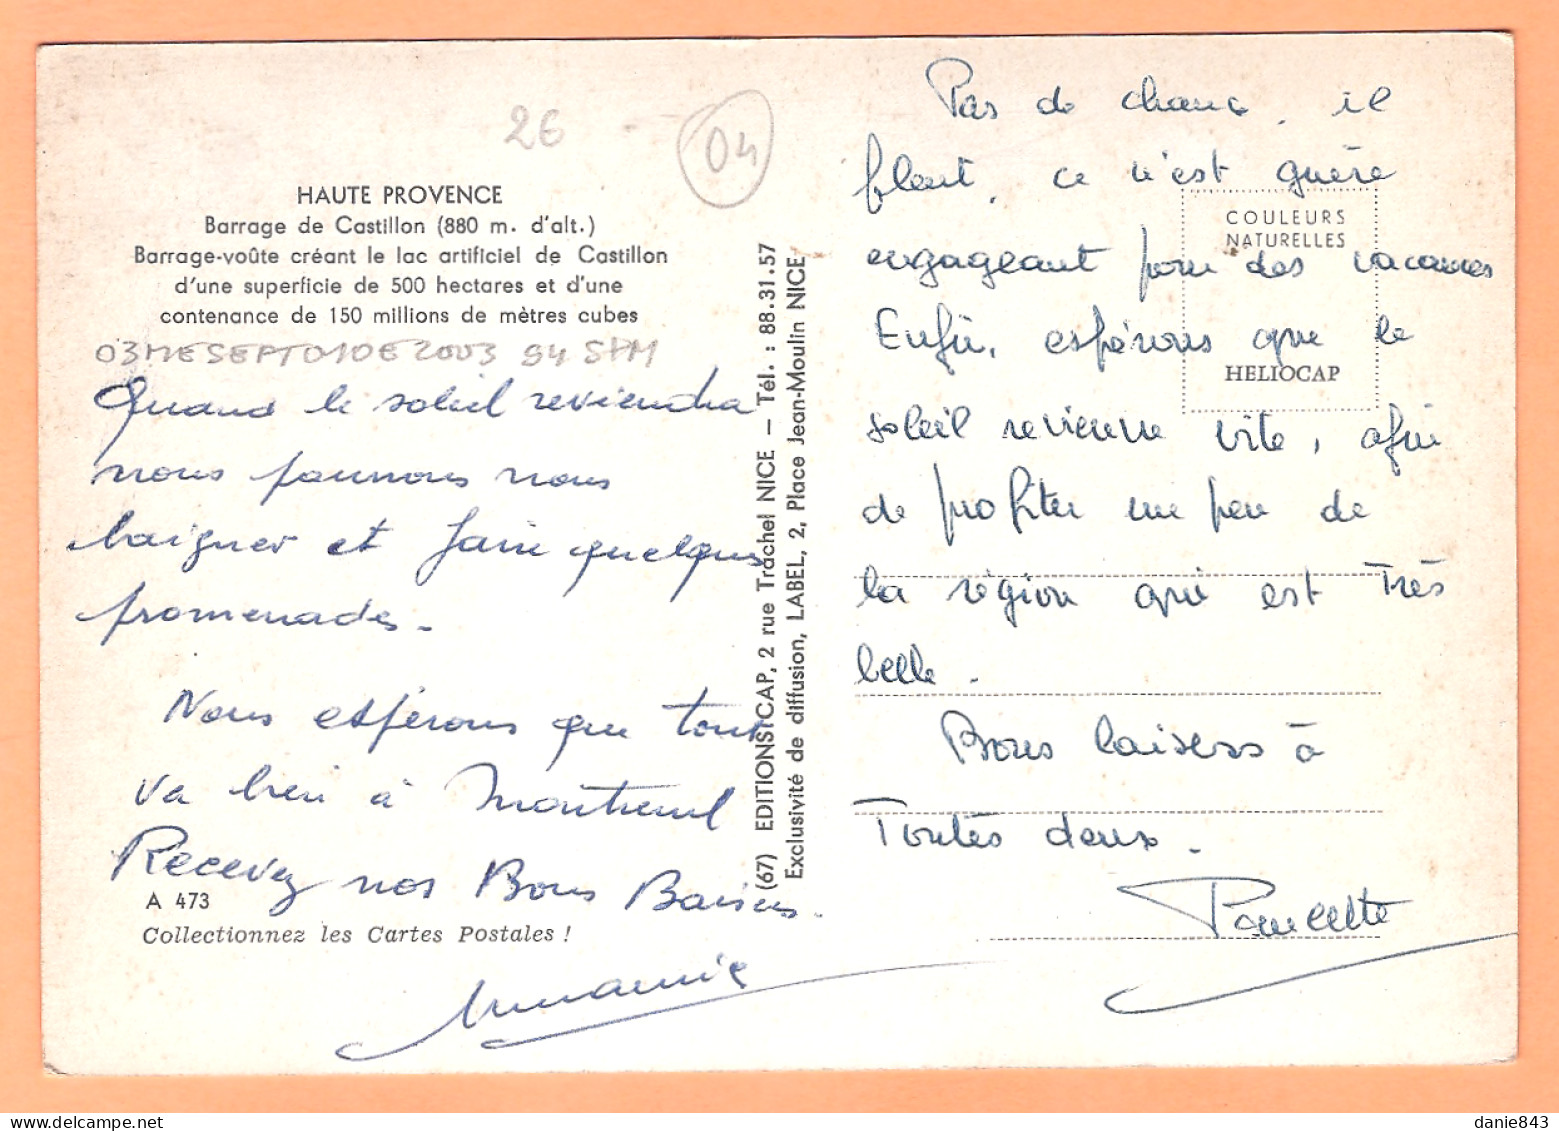 26
04
HAUTE PROVENCE
Barrage de Castillon (880 m. d'alt.)
Barrage-voûte créant le lac artificiel de Castillon
d'une superficie de 500 hectares et d'une
contenance de 150 millions de mètres cubes
03MESEPT010E2003 94 SPM
Quand le soleil reviendra
nous pourrons nous
baigner et faire quelques
promenades.
Nous espérons que tout
va bien à Montreuil
Recevez nos Bons Baisers.
A 473
Collectionnez les Cartes Postales !
(67) EDITIONS CAP, 2 rue Trachel NICE — Tél. : 88.31.57
Exclusivité de diffusion, LABEL, 2, Place Jean-Moulin NICE
Pas de chance, il
pleut, ce n'est guère
COULEURS
NATURELLES
engageant pour des vacances
Enfin, espérons que le
HELIOCAP
soleil revienne vite, afin
de profiter un peu de
la région qui est Très
belle.
Bons baisers à
Toutes deux.
Paulette
danie843